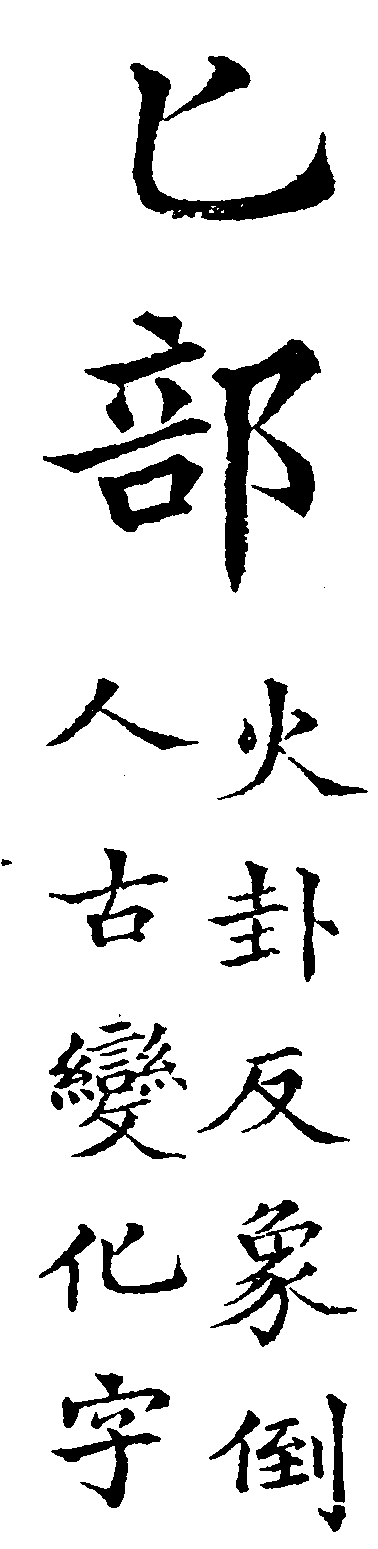 𠤎部
火卦反象倒
人古變化字